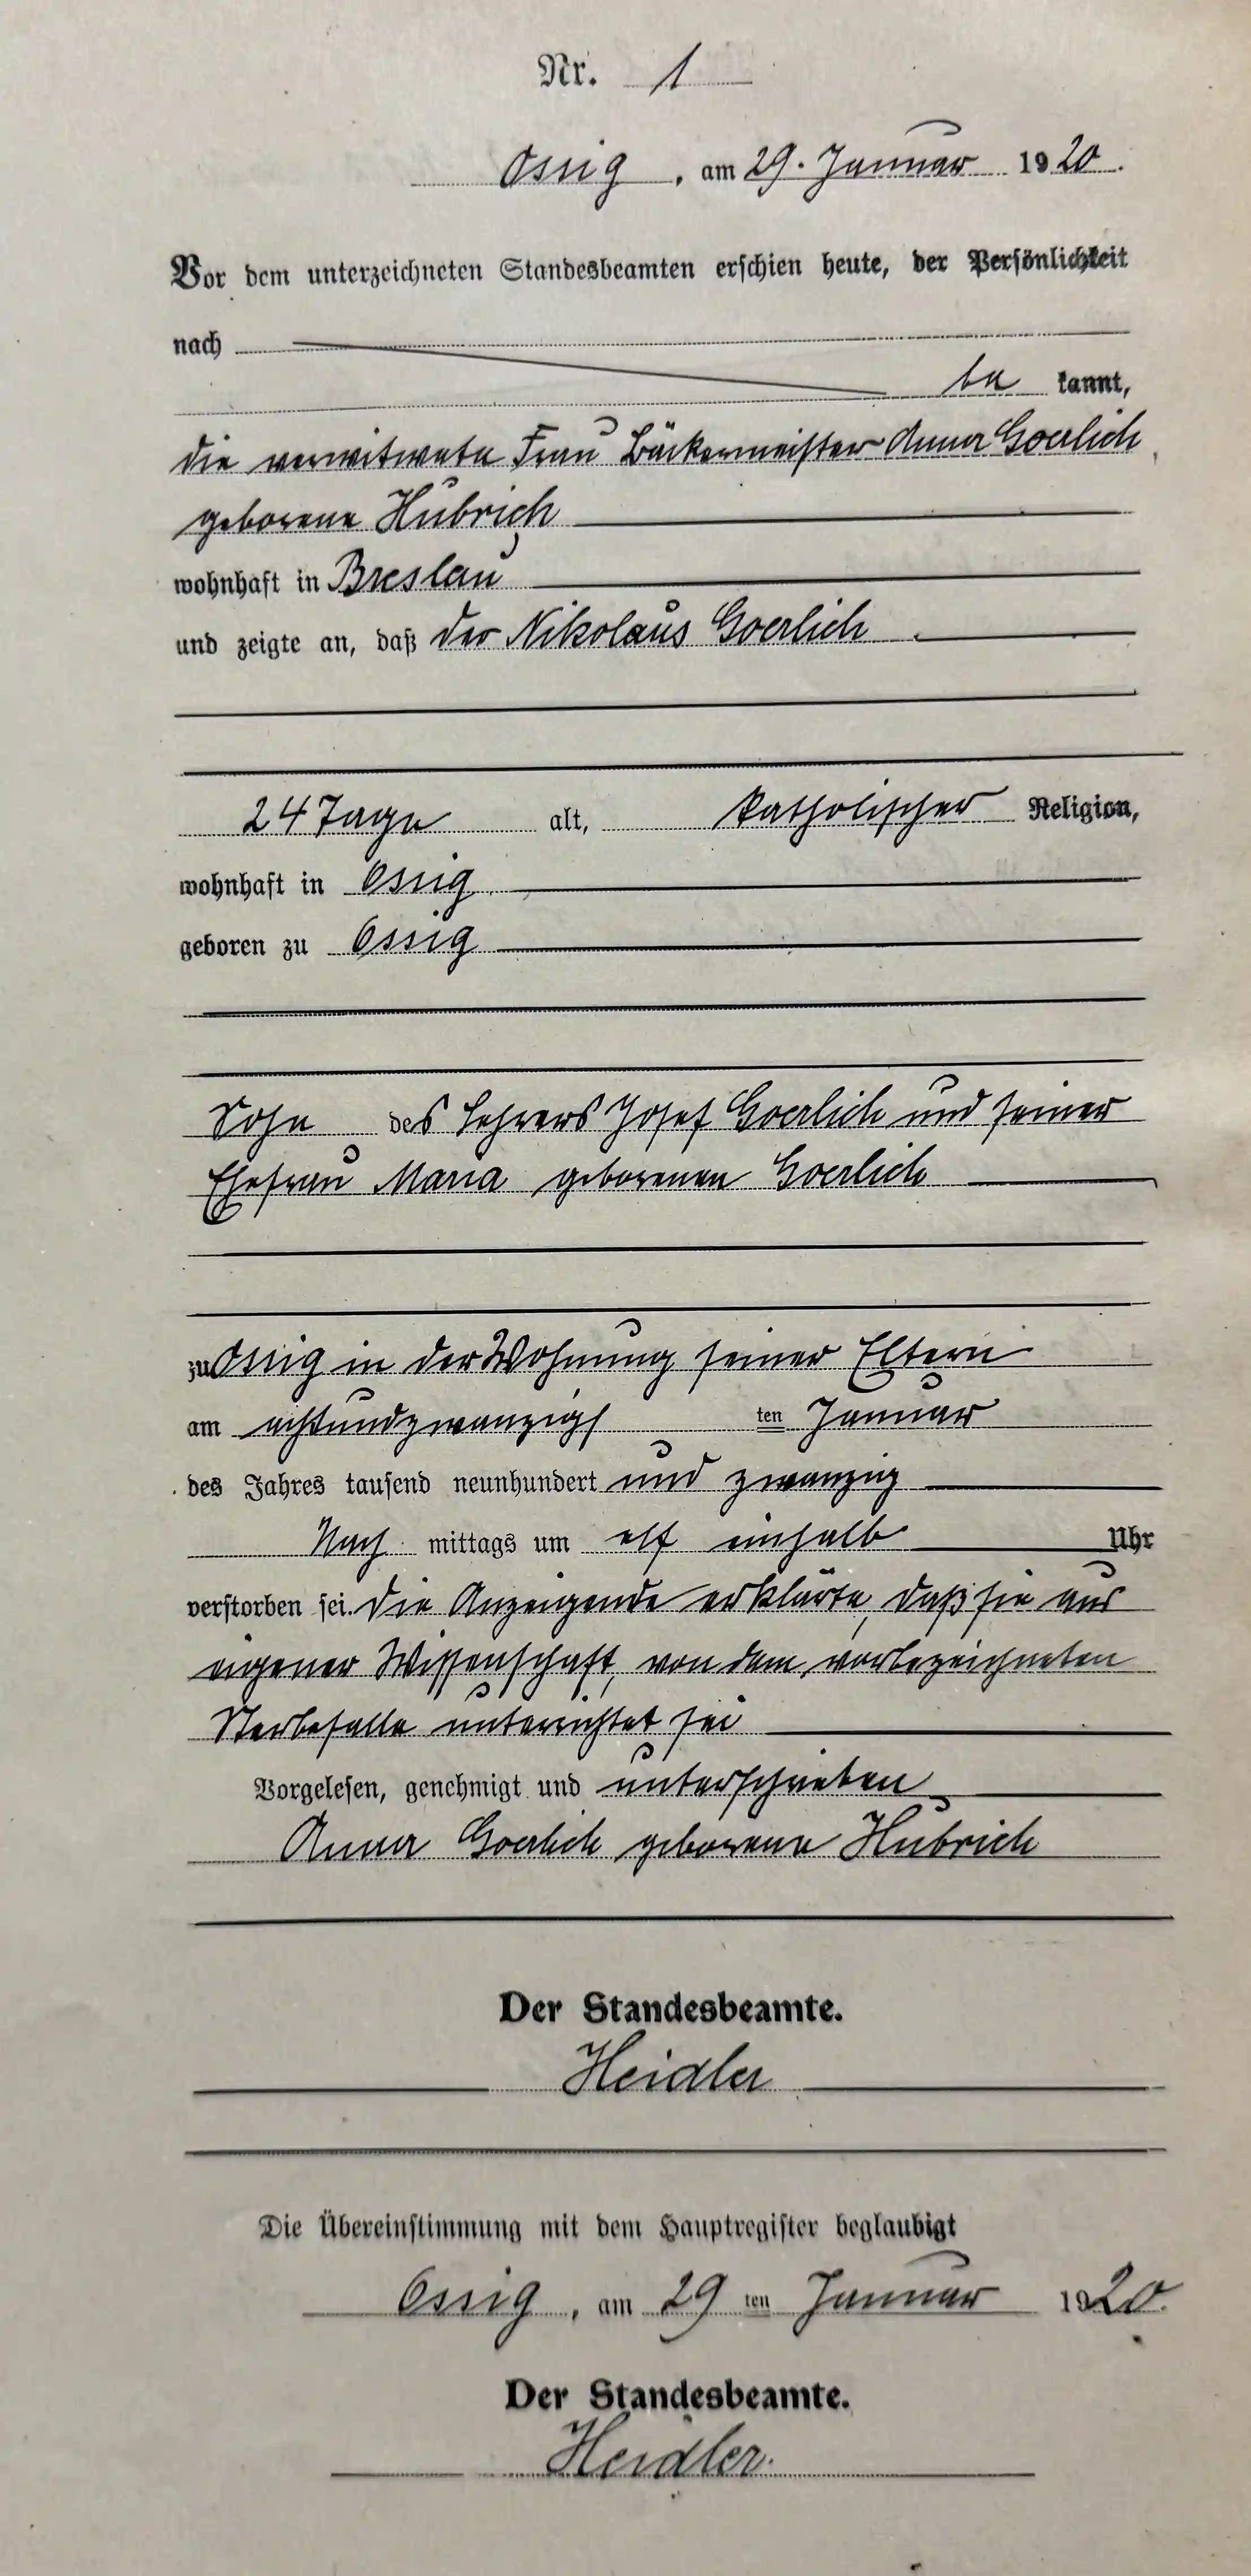 Nr. 1
Ossig, am 29. Januar 1920.
Vor dem unterzeichneten Standesbeamten erschien heute, der Persönlichkeit
nach
be kannt,
die verwitwete Frau Bäckermeister Anna Goerlich,
geborene Hübrich
wohnhaft in Breslau
und zeigte an, daß der Nikolaus Goerlich
24 Tage alt, katholischer Religion,
wohnhaft in Ossig
geboren zu Ossig
Sohn des Lehrers Josef Goerlich und seiner
Ehefrau Maria geborenen Goerlich
zu Ossig in der Wohnung seiner Eltern
am achtundzwanzigsten Januar
des Jahres tausend neunhundert und zwanzig
Nach mittags um elf einhalb Uhr
verstorben sei. Die Anzeigende erklärte, daß sie aus
eigener Wissenschaft, von dem vorbezeichneten
Sterbefalle unterrichtet sei
Vorgelesen, genehmigt und unterschrieben
Anna Goerlich geborene Hübrich
Der Standesbeamte.
Heidler
Die Übereinstimmung mit dem Hauptregister beglaubigt
Ossig, am 29 ten Januar 1920.
Der Standesbeamte.
Heidler.